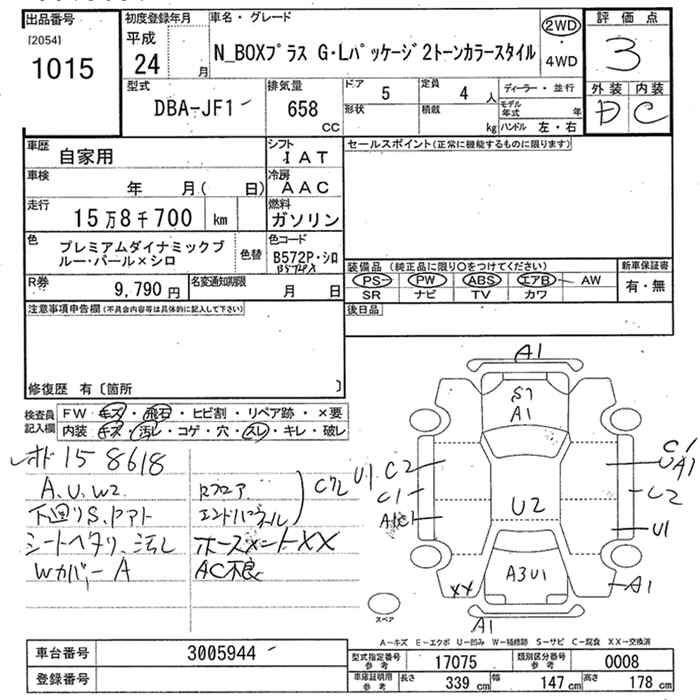 出品番号 初度登録年月 車名・グレード 2WD 評価点
[2054] 平成 N_BOXプラス G・Lパッケージ2トーンカラースタイル ・ 3
1015 24 月 4WD
型式 排気量 ドア 5 定員 4 人 ディーラー・並行 外装 内装
DBA-JF1 658 cc 形状 積載 kg モデル年式 年 D C
ハンドル 左・右
車歴 自家用 シフト IAT セールスポイント(正常に機能するものに限ります)
車検 年 月( 日) 冷房 AAC
走行 15万8千700 km 燃料 ガソリン
色 プレミアムダイナミックブ 色替 色コード
ルー・パール×シロ B572P・シロ
B572PX
装備品 (純正品に限り○をつけてください) 新車保証書
R券 9,790円 名変通知期限 月 日 PS PW ABS エアB AW 有・無
SR ナビ TV カワ
注意事項申告欄(不具合内容等は具体的に記入して下さい) 後日品
修復歴 有〔箇所 〕
検査員 FW キズ・飛石・ヒビ割・リペア跡・×要
記入欄 内装 キズ・汚レ・コゲ・穴・スレ・キレ・破レ
158618
A.U.W2 Rフロア
下回りS.Pアト エンドパネル
シートヘタリ、汚レ ホースメントXX
Wカバー A AC不良
A1
S7
A1
U1 C2
C1
U2
C1
UA1
C2
U1
A3U1
XX
A1
A1
スペア
A-キズ E-エクボ U-凹み W-補修跡 S-サビ C-腐食 XX-交換済
車台番号 3005944 型式指定番号 参考 17075 類別区分番号 参考 0008
登録番号 車庫証明用 参考 長さ 339 cm 幅 147 cm 高さ 178 cm